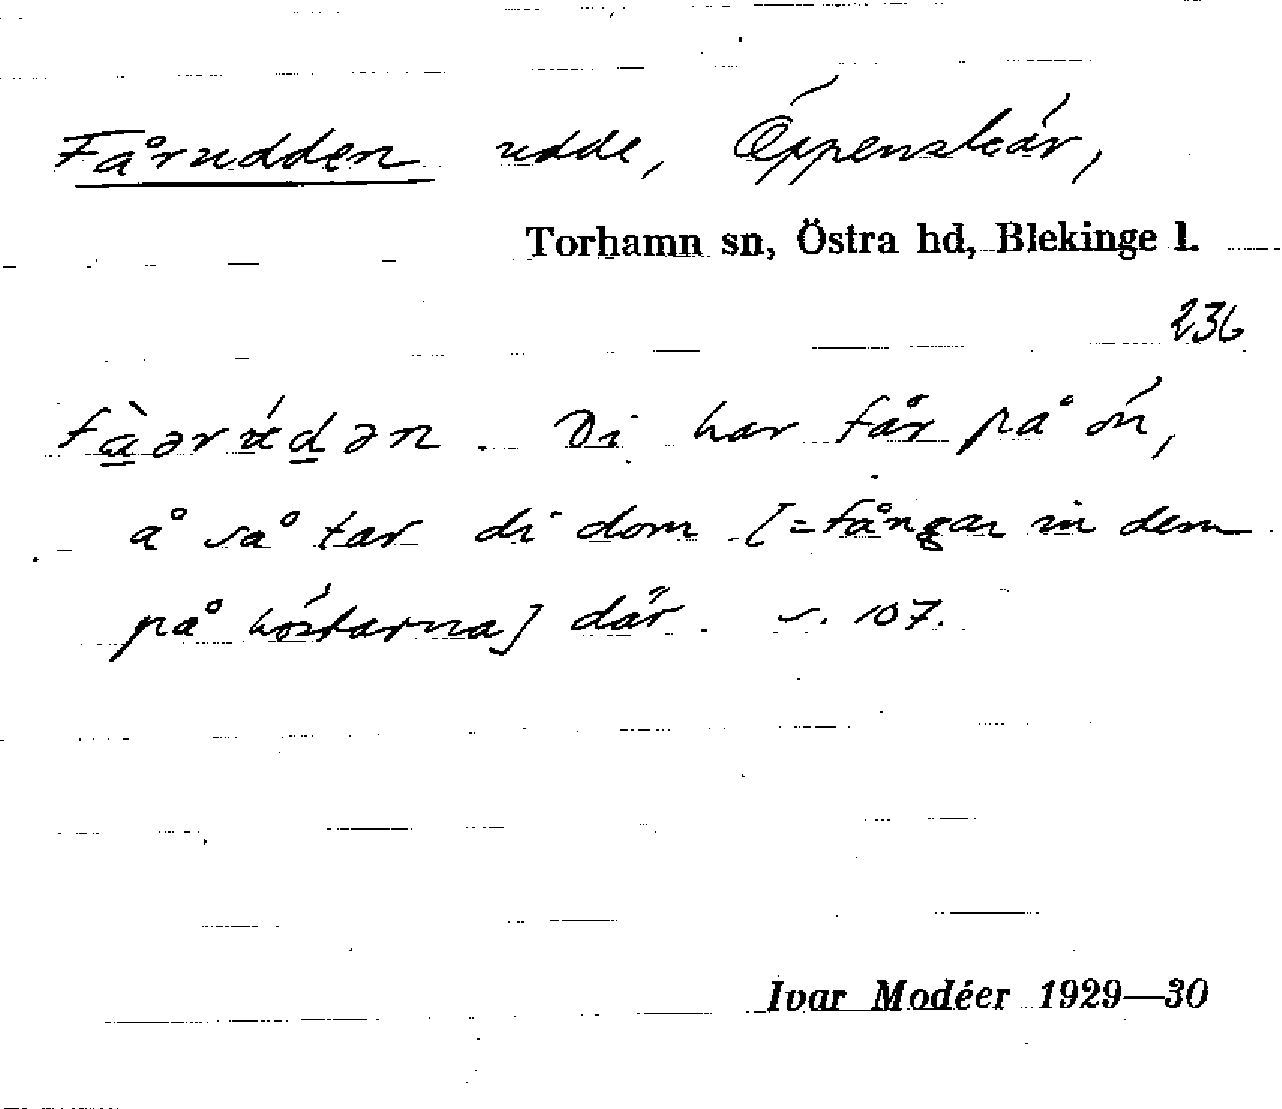 Fårudden udde, Öppenskär,
Torhamn sn, Östra hd, Blekinge l.
236
Di har får på ön,
å så tar di dom [=fångar in dem
på höstarna] där. s. 107.
Ivar Modéer 1929—30